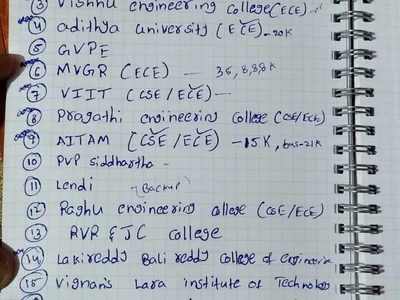 ③ Vishnu engineering College (ECE)
④ adithya university (ECE) - 20K
⑤ GVPE
⑥ MVGR (ECE) —
⑦ VIIT (CSE / ECE) —
⑧ Pragathi engineering College (CSE/ECE)
⑨ AITAM (CSE / ECE) - 15K, bus-21K
⑩ PVP siddhartha -
⑪ Lendi (Backup)
⑫ Raghu engineering college (CSE/ECE)
⑬ RVR & JC College
⑭ Lakireddy Bali reddy college of engineering
⑮ Vignan's Lara institute of Technology